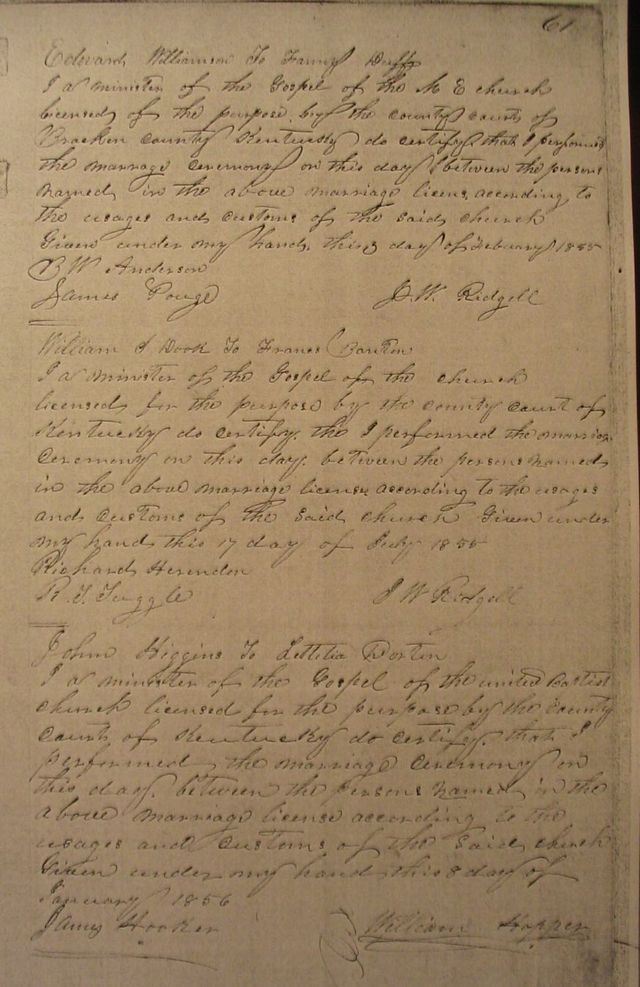 61
Edward Williamson To Fanny Duff
I a minister of the Gospel of the M E church
licensed of the purpose by the county court of
Bracken county Kentucky do certify that I performed
the marriage ceremony on this day between the persons
named in the above marriage licens according to
the usages and customs of the said church
Given under my hand this 3 day of Febuary 1855
B W Anderson
James Pouge J. W. Ridgell
William I Dook To Frances Banton
I a minister of the Gospel of the church
licensed for the purpose by the county court of
Kentucky do certify the I performed the marriage
ceremony on this day between the persons named
in the above marriage license according to the usages
and customs of the said church Given under
my hand this 17 day of July 1855
Richard Herendon
R. T. Tuggle J W Ridgell
John Higgins To Lettitia Dorten
I a minister of the Gospel of the united Baptist
church licensed for the purpose by the county
court of Kentucky do certify that I
performed the marriage ceremony on
this day between the persons named in the
above marriage license according to the
usages and customs of the said church
Given under my hand this 8 day of
January 1856
James Hooker William Hopper